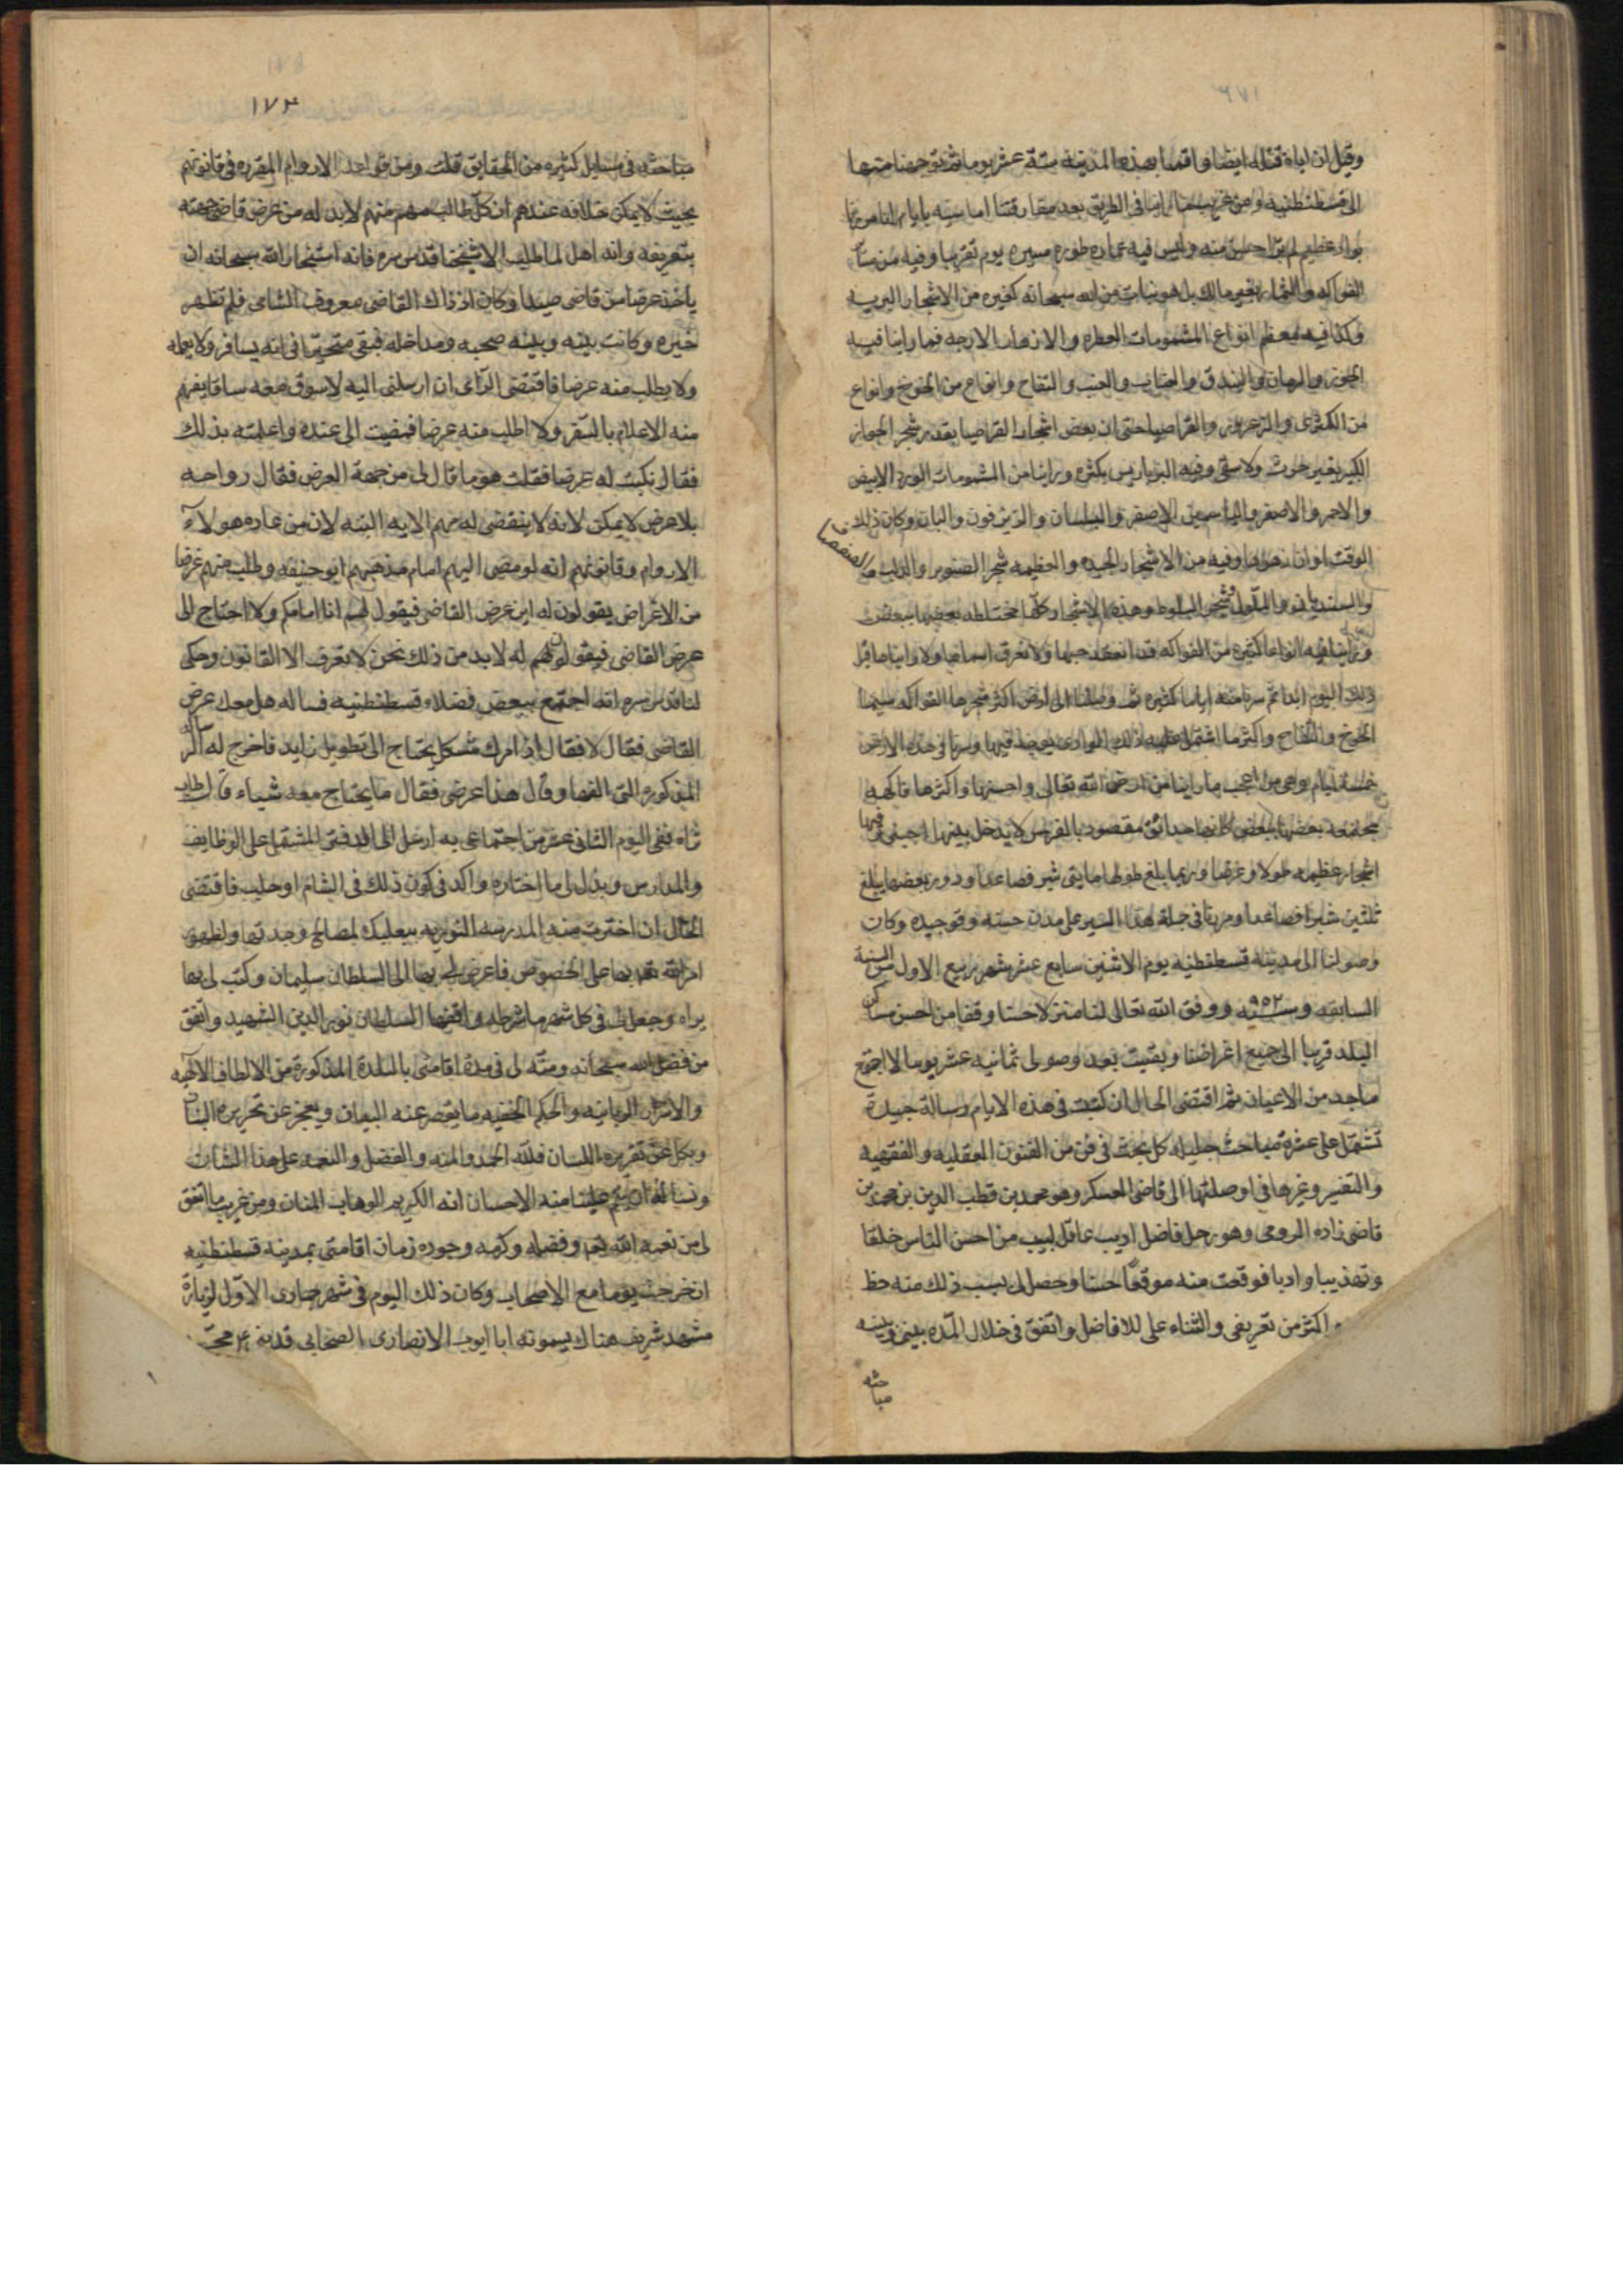 وقيل ان اباه قتله ايضا واقمنا بهذه المدينة ستة عشر يوما ثم توجهنا منها
الى قسطنطنيه ومن غريب ما راينا في الطريق بعد مفارقتنا اماسيه بايام اننا مررنا
بواد عظيم لم نر احسن منه وليس فيه عماره طوله مسيره يوم تقريبا وفيه من سائر
الفواكه والثمار بغير مالك بل هو نبات من الله سبحانه كغيره من الاشجار البريه
وكذا فيه معظم انواع المشمومات العطره والازهار الارجه فمما راينا فيه
الجوز والرمان والبندق والعناب والعنب والتفاح وانواع من الخوخ وانواع
من الكمثرى والزعرور والقراصيا حتى ان بعض اشجار القراصيا بقدر شجر الجوز
الكبير بغير حرث ولا سقى وفيه البرباريس بكثره وراينا من المشمومات الورد الابيض
والاحمر والاصفر والياسمين الاصفر والبلسان والزيزفون والبان وكان ذلك
الوقت اوان زهرها وفيه من الاشجار الجيده والعظيمه شجر الصنوبر والدلب و
الصفصاف
والسنديان والملول وشجر البلوط وهذه الاشجار كلها مختلطه بعضها ببعض
وراينا فيه انواعا كثيره من الفواكه قد انعقد حبها ولا نعرف اسماءها ولا رايناها قبل
ذلك اليوم ابدا ثم سرنا منه اياما كثيره ثم وصلنا الى ارض اكثر شجرها الفواكه سيما
الخوخ والتفاح واكثر ما اشتمل عليه ذلك الوادى يوجد فيها وسرنا في هذه الارض
خمسة ايام وهى من اعجب ما راينا من ارض الله تعالى واحسنها واكثرها فاكهه
مجتمعه بعضها ببعض كانها حدائق مقصود بالغرس لا يدخل بينها اجنبى وفيها
اشجار عظيمه طولا وعرضا وربما بلغ طولها مايتى شبر فصاعدا ودور بعضها يبلغ
ثلثين شبرا فصاعدا ومررنا في جملة هذا السير على مدن حسنه وقو جيده وكان
وصولنا الى مدينة قسطنطنيه يوم الاثنين سابع عشر شهر ربيع الاول من السنة
السابقه وهى سنه ٩٥٢ ووفق الله تعالى لنا منزلا حسنا وقفا من احسن مساكن
البلد قريبا الى جميع اغراضنا وبقيت بعد وصولى ثمانيه عشر يوما لا اجتمع
باحد من الاعيان ثم اقتضى الحال ان كتبت في هذه الايام رسالة جيدة
تشتمل على عشرة مباحث جليله كل بحث في فن من الفنون العقليه والفقهيه
والتفسير وغيرها فاوصلتها الى قاضى العسكر وهو محمد بن قطب الدين بن محمد بن
قاضى زاده الرومى وهو رجل فاضل اديب عاقل لبيب من احسن الناس خلقا
وتهذيبا وادبا فوقعت منه موقعا حسنا وحصل لى بسبب ذلك منه حظ
اكثر من تعريفى والثناء على للافاضل واتفق في خلال المده بينى وبينه
مباحثه
١٧٣
مباحثه في مسايل كثيره من الحقايق قلت ومن قواعد الاروام المقرره في قانونهم
بحيث لا يمكن خلافه عندهم ان كل طالب منهم لا بد له من عرض قاضى جهته
بتعريفه وانه اهل لما طلب الا شيخنا قدس سره فانه استخار الله سبحانه ان
ياخذ عرضا من قاضى صيدا وكان اذ ذاك القاضى معروف الشامى فلم تظهر
خيره وكانت بينه وبينه صحبه ومداخله فبقى متحيرا في انه يسافر ولا يعلمه
ولا يطلب منه عرضا فاقتضى الرأى ان ارسلنى اليه لاسوق معه سياقا يفهم
منه الاعلام بالسفر ولا اطلب منه عرضا فمضيت الى عنده واعلمته بذلك
فقال نكتب له عرضا فقلت هو ما قال لى من جهة العرض فقال رواحه
بلا عرض لا يمكن لانه لا ينقضى له مهم الا به البته لان من عاده هولاء
الاروام وقانونهم انه لو مضى اليهم امام مذهبهم ابو حنيفه وطلب منهم غرضا
من الاغراض يقولون له اين عرض القاضى فيقول لهم انا امامكم ولا احتاج الى
عرض القاضى فيقولون له لا بد من ذلك نحن لا نعرف الا القانون وحكى
لنا قدس سره انه اجتمع ببعض فضلاء قسطنطنيه فساله هل معك عرض
القاضى فقال لا فقال اذا امرك مشكل يحتاج الى تطويل زايد فاخرج له الرسالة
المذكوره التى الفها وقال هذا عرضى فقال ما يحتاج معه شياء قال طاب
ثراه ففى اليوم الثانى عشر من اجتماعى به ارسل الى الدفتر المشتمل على الوظايف
والمدارس وبذل لى ما اختاره واكد في كون ذلك في الشام او حلب فاقتضى
الحال ان اخترت منه المدرسه النوريه ببعلبك لمصالح وجدتها ولظهور
امر الله تعالى بها على الخصوص فاعرض لى بها الى السلطان سليمان وكتب لى بها
براه وجعل لى في كل شهر ما شرطه واقفها السلطان نور الدين الشهيد واتفق
من فضل الله سبحانه ومنه لى في مدة اقامتى بالبلدة المذكورة من الالطاف الالهيه
والاسرار الربانيه والحكم الخفيه ما يقصر عنه البيان ويعجز عن تحريره البنان
ويكل عن تقريره اللسان فلله الحمد والمنه والفضل والنعمه على هذا الشان
ونساله ان يتم علينا منه الاحسان انه الكريم الوهاب المنان ومن غريب ما اتفق
لى من نعمة الله تعالى وفضله وكرمه وجوده زمان اقامتى بمدينه قسطنطنيه
ان خرجت يوما مع الاصحاب وكان ذلك اليوم في شهر جمادى الاول لزيارة
مشهد شريف هناك يسمونه ابا ايوب الانصارى الصحابى قد بنى